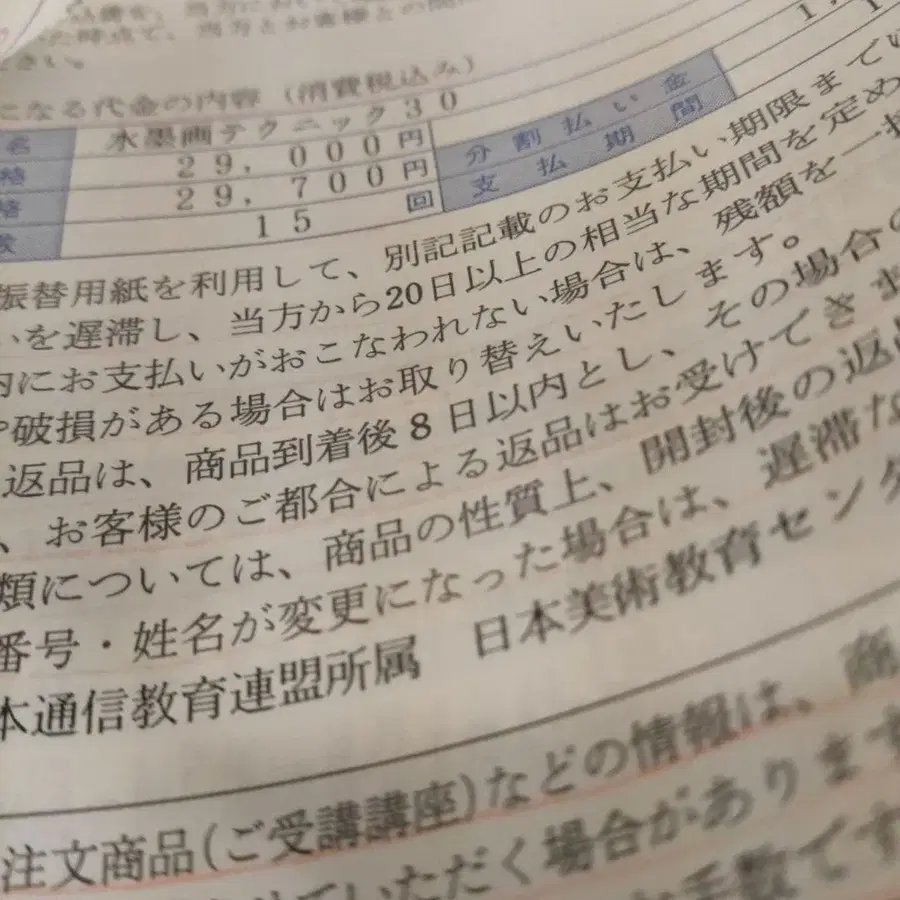 当方とお客様との
さい。
になる代金の内容（消費税込み）
名 水墨画テクニック30
格 29，000円 分割払い金
29，700円 支払期間
数 15 回
振替用紙を利用して、別記記載のお支払い期限まで
を遅滞し、当方から20日以上の相当な期間を定め
内にお支払いがおこなわれない場合は、残額を一括
破損がある場合はお取り替えいたします。
返品は、商品到着後8日以内とし、その場合の
、お客様のご都合による返品はお受けできま
類については、商品の性質上、開封後の返品
番号・姓名が変更になった場合は、遅滞な
本通信教育連盟所属 日本美術教育センタ
注文商品(ご受講講座)などの情報は、商
いただく場合があります
手数です